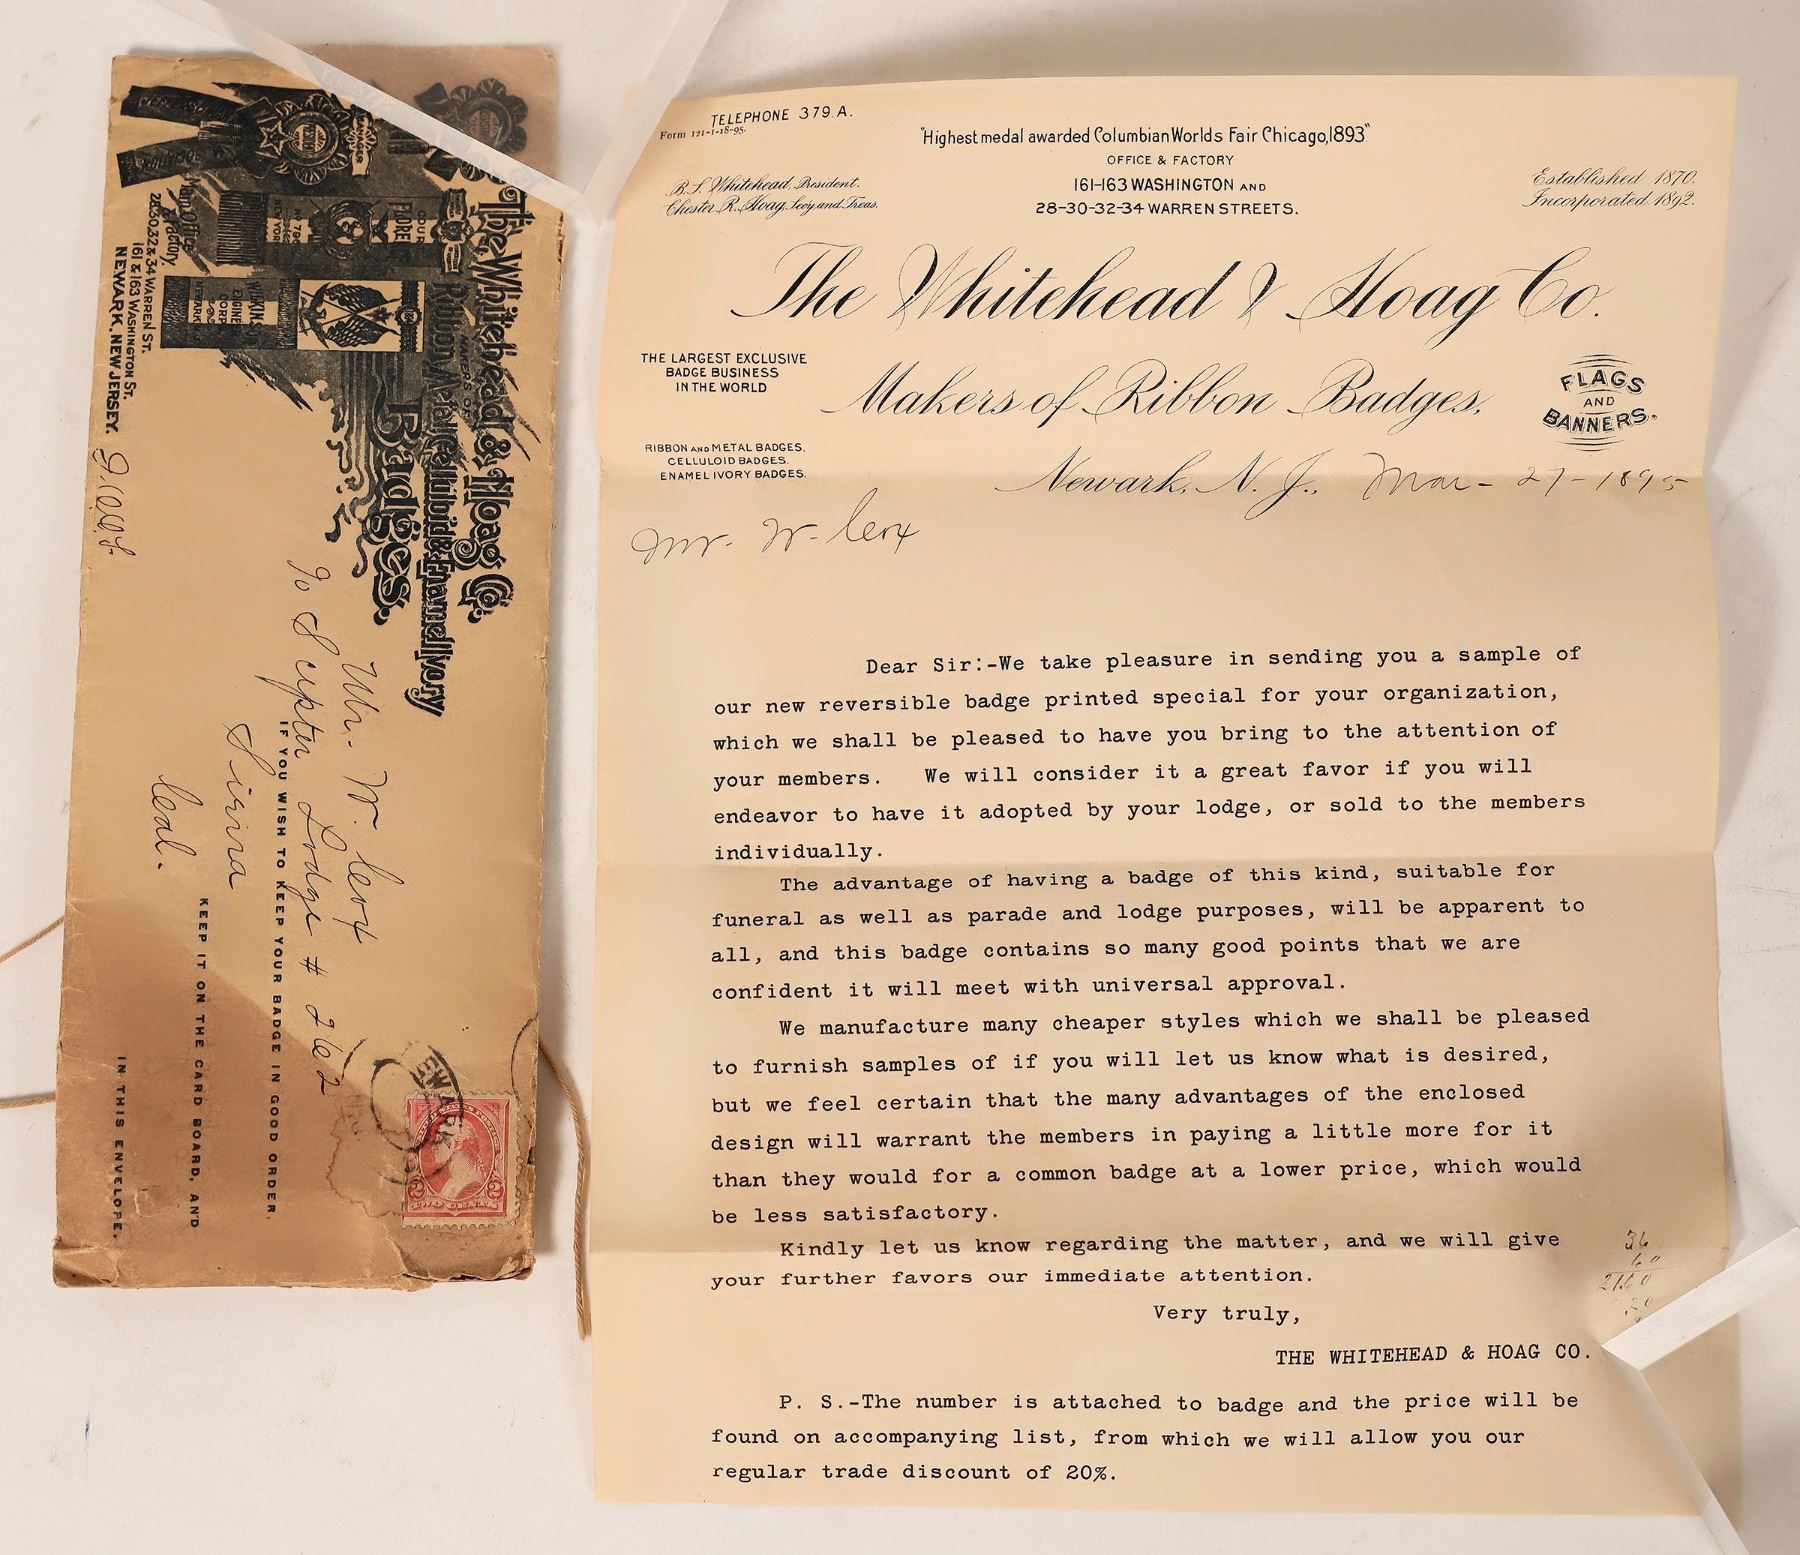 TELEPHONE 379 A.
Form 121-1-18-95.
"Highest medal awarded Columbian Worlds Fair Chicago, 1893"
OFFICE & FACTORY
161-163 WASHINGTON AND
28-30-32-34 WARREN STREETS.
B.S. Whitehead, President.
Chester R. Hoag, Secy and Treas.
Established 1870.
Incorporated 1892.
The Whitehead & Hoag Co.
THE LARGEST EXCLUSIVE
BADGE BUSINESS
IN THE WORLD
Makers of Ribbon Badges,
FLAGS
AND
BANNERS.
RIBBON AND METAL BADGES.
CELLULOID BADGES.
ENAMEL IVORY BADGES.
Newark, N. J., Mar - 27 - 1895
Mr. W.
Dear Sir:-We take pleasure in sending you a sample of
our new reversible badge printed special for your organization,
which we shall be pleased to have you bring to the attention of
your members. We will consider it a great favor if you will
endeavor to have it adopted by your lodge, or sold to the members
individually.
The advantage of having a badge of this kind, suitable for
funeral as well as parade and lodge purposes, will be apparent to
all, and this badge contains so many good points that we are
confident it will meet with universal approval.
We manufacture many cheaper styles which we shall be pleased
to furnish samples of if you will let us know what is desired,
but we feel certain that the many advantages of the enclosed
design will warrant the members in paying a little more for it
than they would for a common badge at a lower price, which would
be less satisfactory.
Kindly let us know regarding the matter, and we will give
your further favors our immediate attention.
Very truly,
THE WHITEHEAD & HOAG CO.
P. S.-The number is attached to badge and the price will be
found on accompanying list, from which we will allow you our
regular trade discount of 20%.
36
60
2160
20
The Whitehead & Hoag Co.
MAKERS OF
Ribbon, Metal, Celluloid & Enamel Ivory
Badges.
Main Office
& Factory,
28.30.32 & 34 WARREN ST.
161 & 163 WASHINGTON ST.
NEWARK, NEW JERSEY.
Mr. W.
To Scepter Lodge # 262
IF YOU WISH TO KEEP YOUR BADGE IN GOOD ORDER,
KEEP IT ON THE CARD BOARD, AND
IN THIS ENVELOPE.